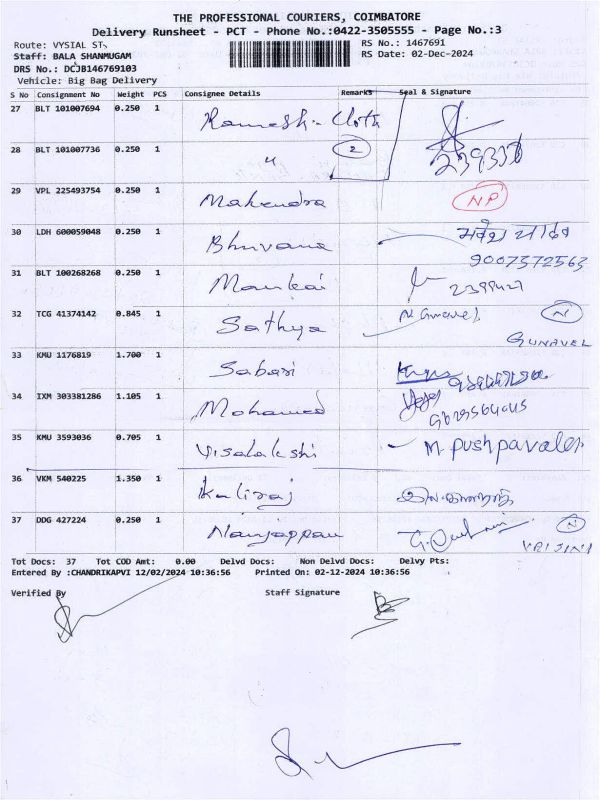 THE PROFESSIONAL COURIERS, COIMBATORE
Delivery Runsheet - PCT - Phone No.:0422-3505555 - Page No.:3
Route: VYSIAL ST
RS No.: 1467691
Staff: BALA SHANMUGAM
RS Date: 02-Dec-2024
DRS No.: DCJB146769103
Vehicle: Big Bag Delivery
S No Consignment No Weight PCS Consignee Details Remarks Seal & Signature
27 BLT 101007694 0.250 1 Ramesh - Cloth
28 BLT 101007736 0.250 1 " 2
29 VPL 225493754 0.250 1 Mahendra NP
30 LDH 600059048 0.250 1 Bhuvana
9007372563
31 BLT 100268268 0.250 1 Mankai
32 TCG 41374142 0.845 1 Sathya N
GUNAVEL
33 KMU 1176819 1.700 1 Sabari
34 IXM 303381286 1.105 1 Mohamed
35 KMU 3593036 0.705 1 Visalakshi M. Pushpavalli
36 VKM 540225 1.350 1 Kaliraj
37 DDG 427224 0.250 1 Nanjappan N
Tot Docs: 37 Tot COD Amt: 0.00 Delvd Docs: Non Delvd Docs: Delvy Pts:
Entered By :CHANDRIKAPVI 12/02/2024 10:36:56 Printed On: 02-12-2024 10:36:56
Verified By Staff Signature